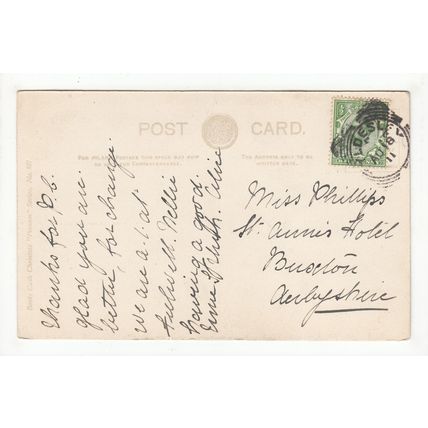 POST CARD.
FOR INLAND POSTAGE THIS SPACE MAY NOW
BE USED FOR COMMUNICATION.
THE ADDRESS ONLY TO BE
WRITTEN HERE.
Thanks for P.C.
glad you are
better, for change
we are a. 1. at
M. Nellie
having a good
time
Miss Phillips
St. Anns Hotel
Buxton
Derbyshire
DESLEY
AU 16
11